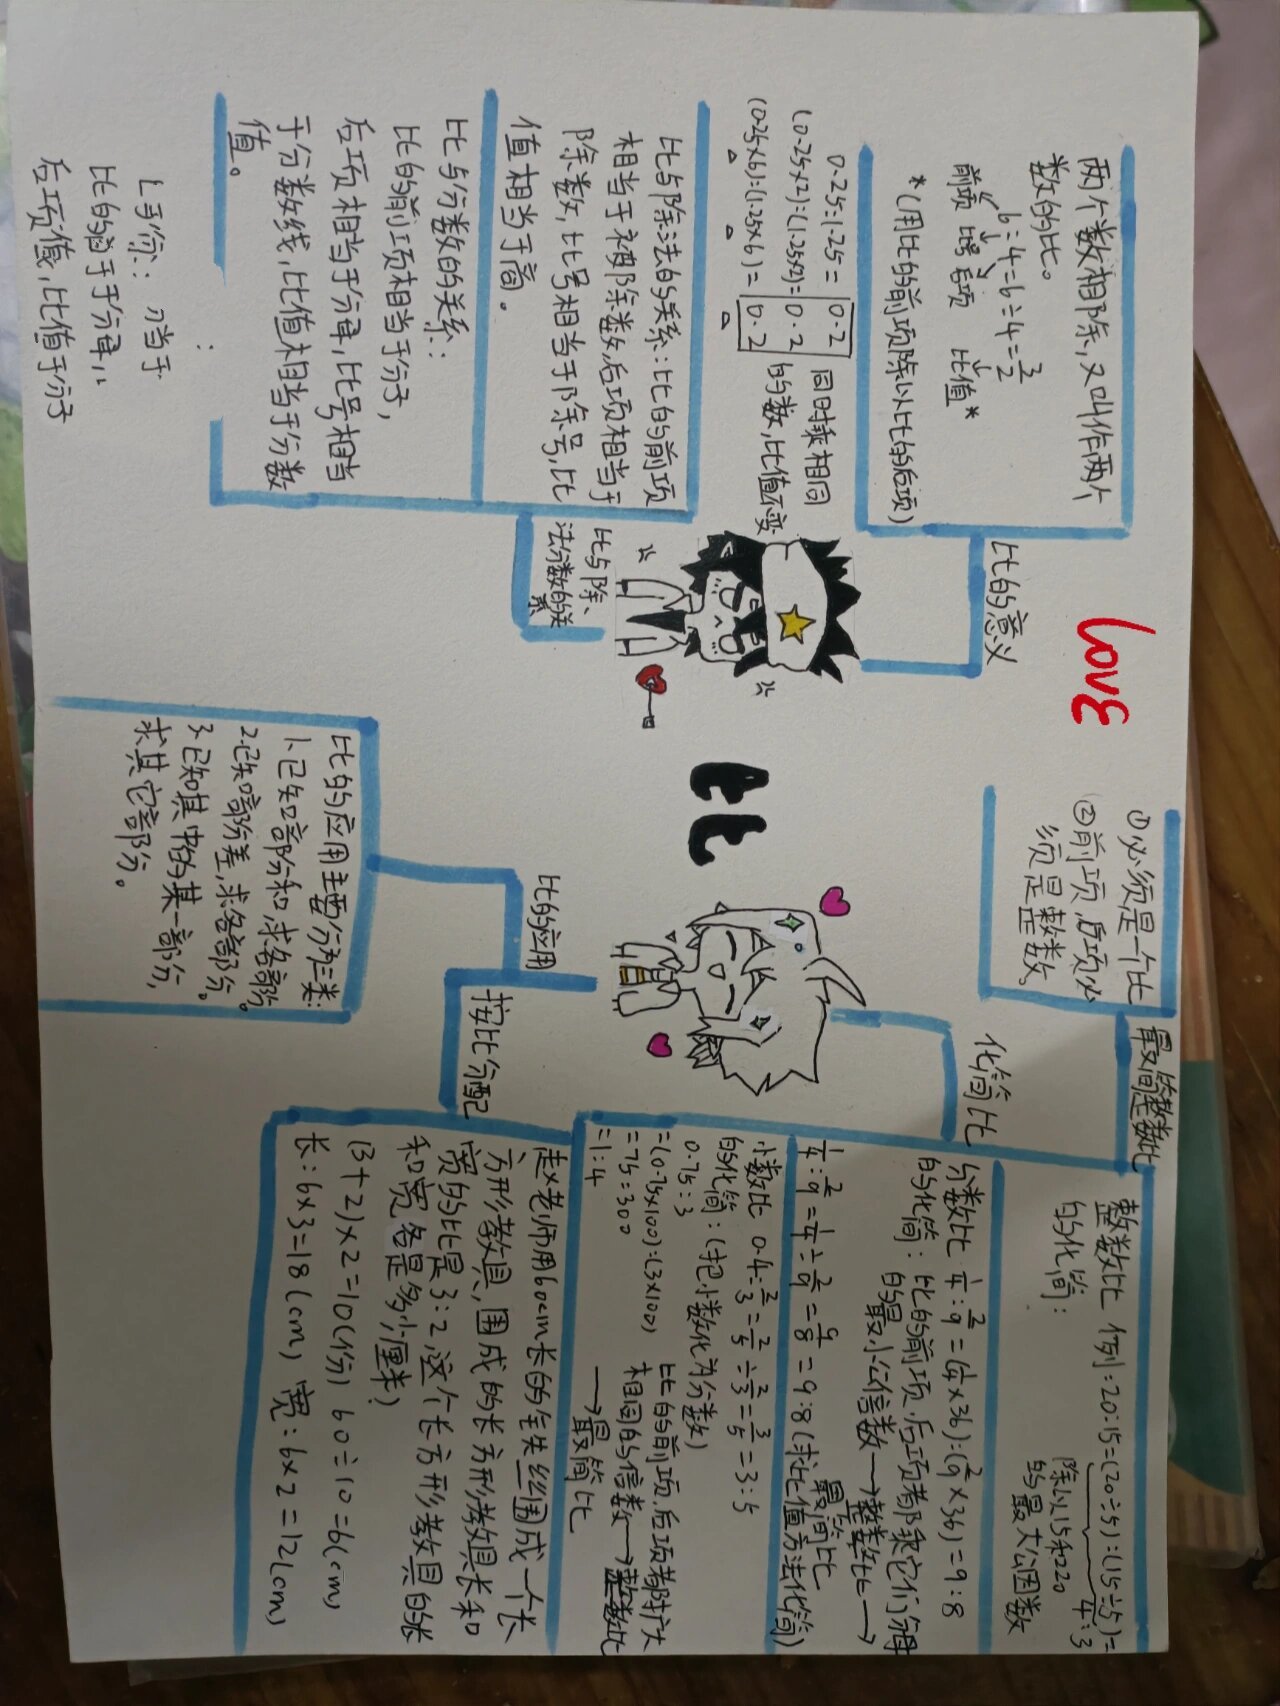 love
比
比的意义
两个数相除,又叫作两个
数的比。
6:4=6÷4=3/2
前项 比号 后项 比值*
*(用比的前项除以比的后项)
0.25:1.25=0.2
(0.25×2):(1.25×2)=0.2
(0.25×6):(1.25×6)=0.2
同时乘相同
的数,比值不变
比与除、
法分数的关
系
比与除法的关系:比的前项
相当于被除数,后项相当于
除数,比号相当于除号,比
值相当于商。
比与分数的关系:
比的前项相当于分子,
后项相当于分母,比号相当
于分数线,比值相当于分数
值。
当于
后项值,比值于分子
化简比
最简整数比
①必须是一个比
②前项,后项必
须是整数。
整数比 例:20:15=(20÷5):(15÷5)=
4:3
的化简:
除以15和20
的最大公因数
分数比 1/4:2/9=(1/4×36):(2/9×36)=9:8
的化简:比的前项,后项都乘它们分母
的最小公倍数→整数比→
最简比
1/4:2/9=1/4÷2/9=9/8=9:8(求比值方法化简)
小数比 0.4:2/3=2/5÷2/3=3/5=3:5
的化简:(把小数化为分数)
0.75:3
=(0.75×100):(3×100)
=75:300
=1:4
比的前项,后项都扩大
相同的倍数→整数比
→最简比
比的应用
比的应用主要分为三类:
1.已知部分和,求各部分。
2.已知部分差,求各部分。
3.已知其中的某一部分,
求其它部分。
按比分配
赵老师用60cm长的铁丝围成一个长
方形教具,围成的长方形教具长和
宽的比是3:2,这个长方形教具的长
和宽各是多少厘米?
(3+2)×2=10(份) 60÷10=6(cm)
长:6×3=18(cm) 宽:6×2=12(cm)